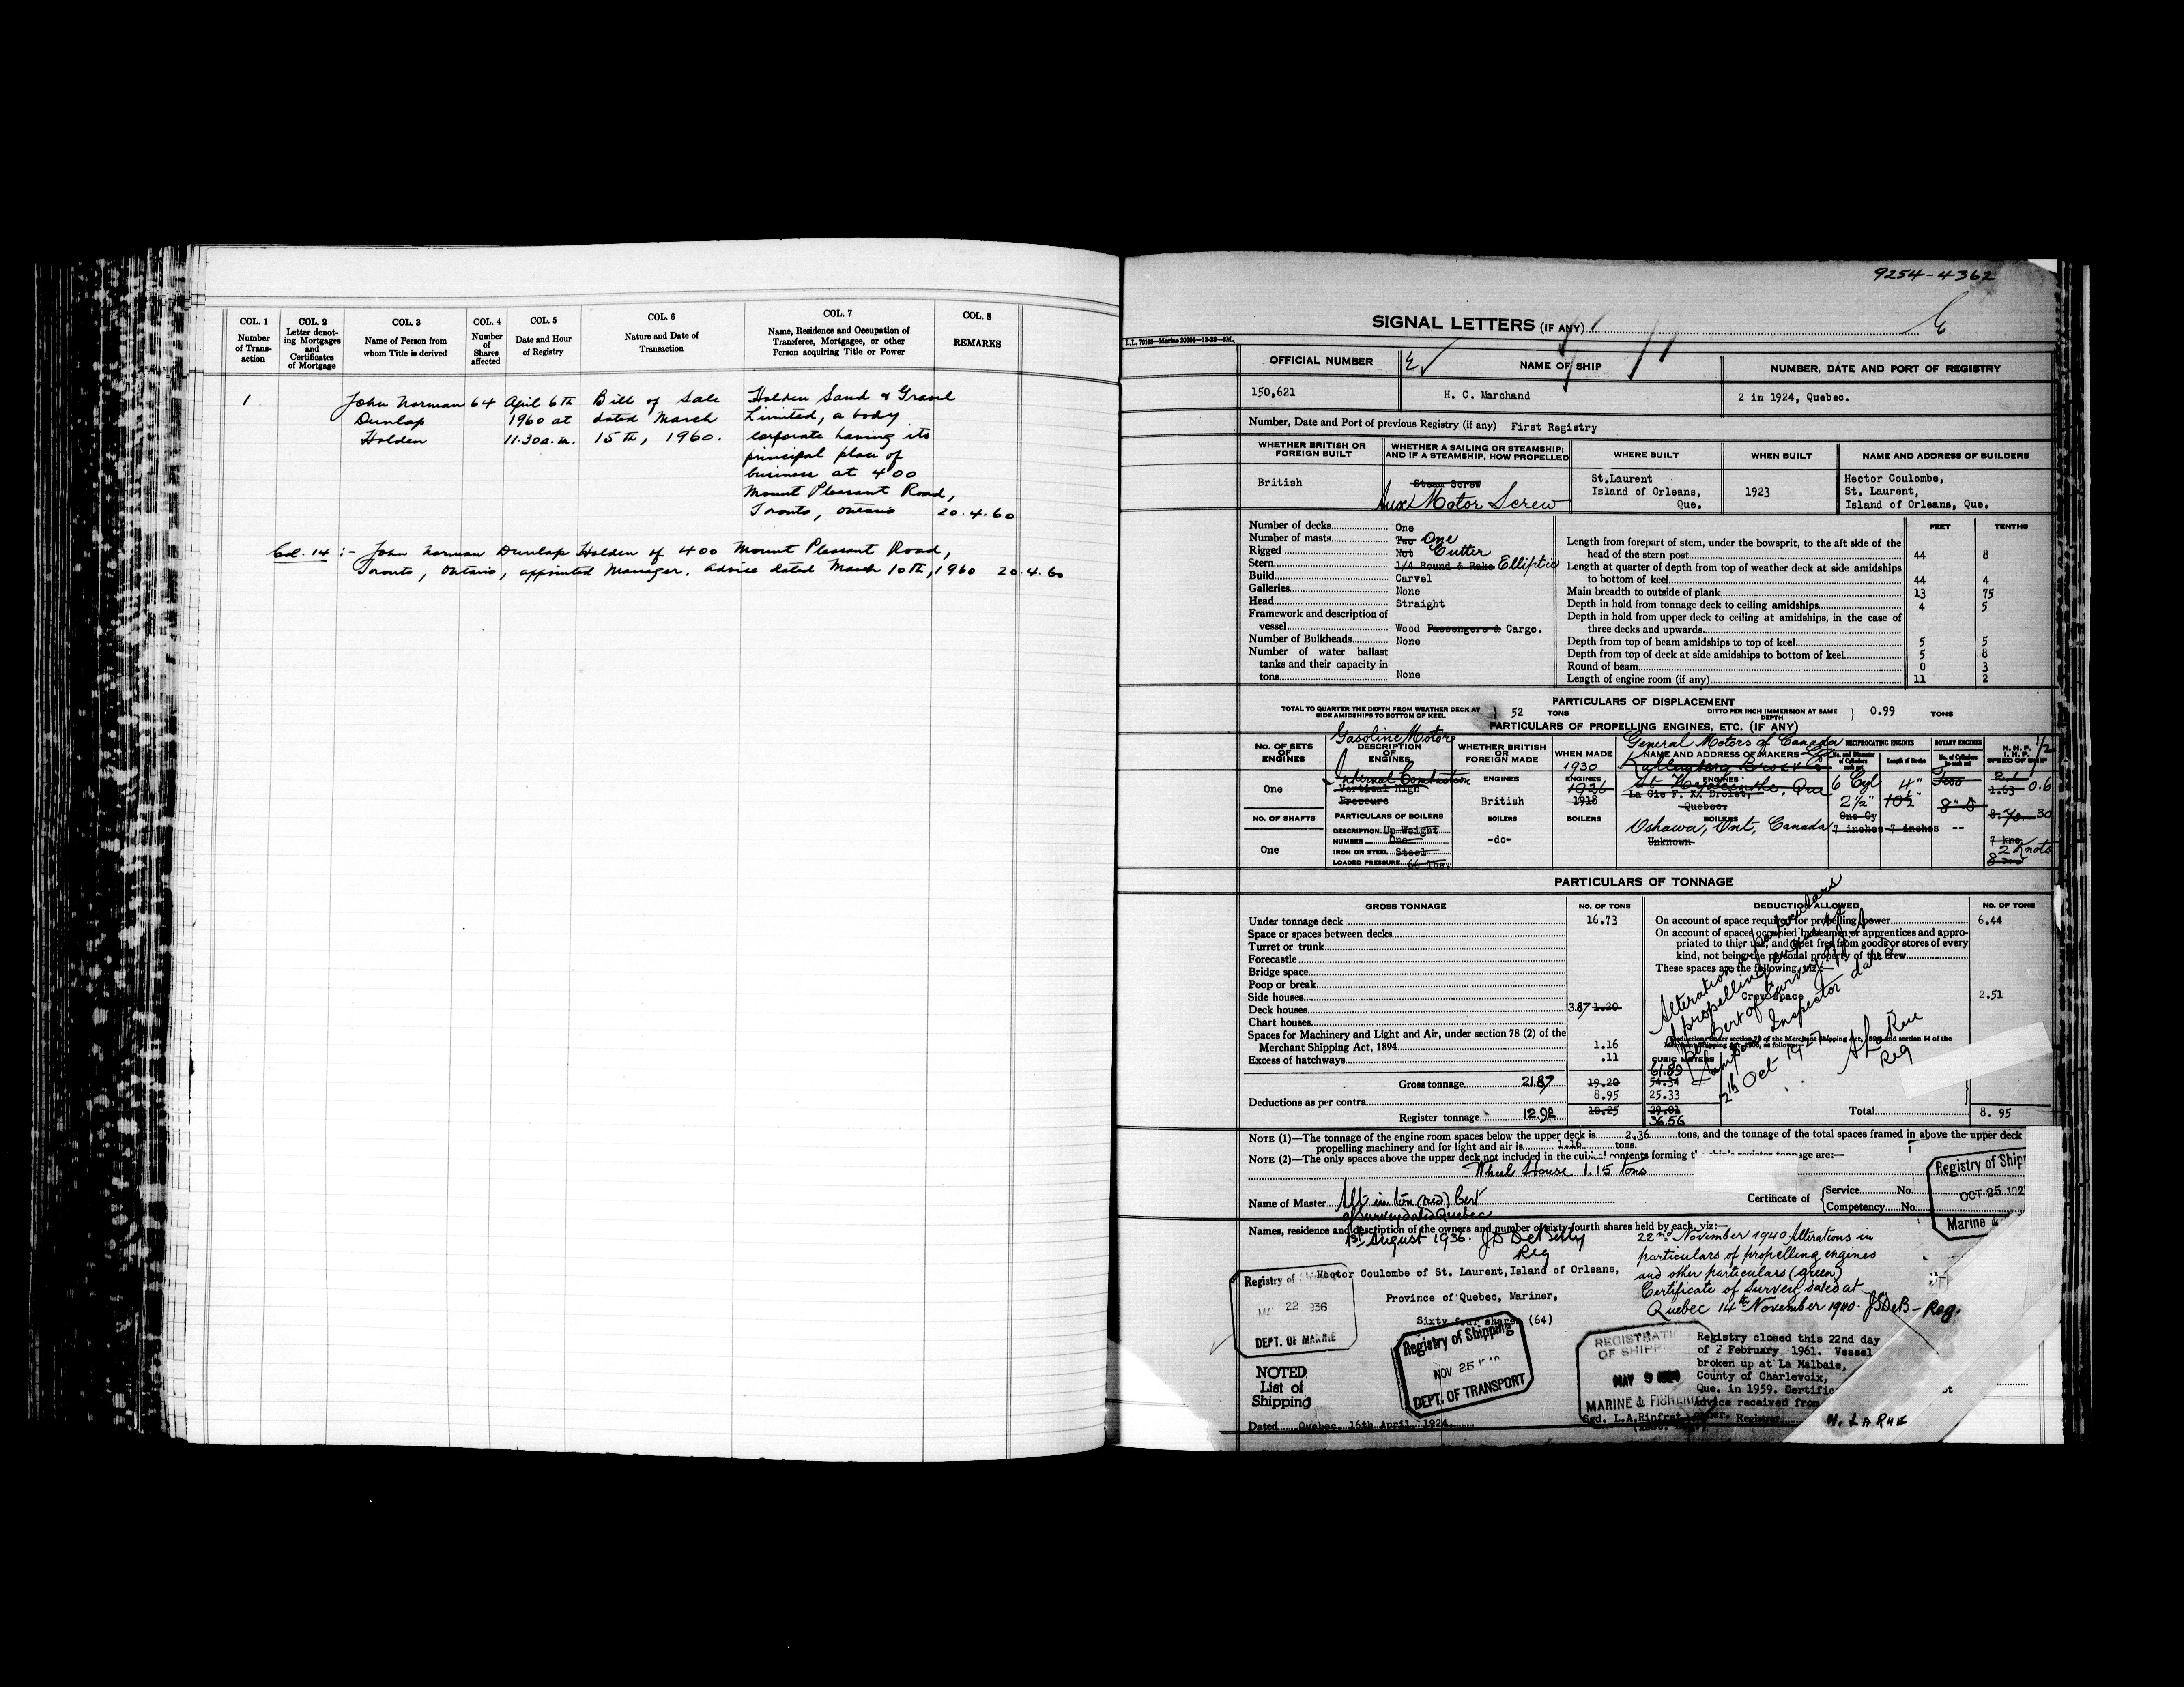 COL. 1 COL. 2 COL. 3 COL. 4 COL. 5 COL. 6 COL. 7 COL. 8
Number of Transaction
Letter denoting Mortgages and Certificates of Mortgage
Name of Person from whom Title is derived
Number of Shares affected
Date and Hour of Registry
Nature and Date of Transaction
Name, Residence and Occupation of Transferee, Mortgagee, or other Person acquiring Title or Power
REMARKS
1 John Norman 64 April 6th Bill of Sale Holden Sand & Gravel
Dunlap 1960 at dated March Limited, a body
Holden 11.30 a.m. 15th, 1960. corporate having its
principal place of
business at 400
Mount Pleasant Road,
Toronto, Ontario 20.4.60
Col. 14 :- John Norman Dunlap Holden of 400 Mount Pleasant Road,
Toronto, Ontario, appointed Manager. Advice dated March 10th, 1960 20.4.60
9254-4362
SIGNAL LETTERS (IF ANY)
L.L. 70106—Marine 30006—12-23—2M.
OFFICIAL NUMBER NAME OF SHIP NUMBER, DATE AND PORT OF REGISTRY
150,621 H. C. Marchand 2 in 1924, Quebec.
Number, Date and Port of previous Registry (if any) First Registry
WHETHER BRITISH OR FOREIGN BUILT
WHETHER A SAILING OR STEAMSHIP; AND IF A STEAMSHIP, HOW PROPELLED
WHERE BUILT
WHEN BUILT
NAME AND ADDRESS OF BUILDERS
British
Steam Screw
Aux Motor Screw
St.Laurent
Island of Orleans,
Que.
1923
Hector Coulombe,
St. Laurent,
Island of Orleans, Que.
Number of decks One
Number of masts Two One
Rigged Not Cutter
Stern 1/4 Round & Rake Elliptic
Build Carvel
Galleries None
Head Straight
Framework and description of
vessel Wood Passengers & Cargo.
Number of Bulkheads None
Number of water ballast
tanks and their capacity in
tons None
FEET TENTHS
Length from forepart of stem, under the bowsprit, to the aft side of the
head of the stern post 44 8
Length at quarter of depth from top of weather deck at side amidships
to bottom of keel 44 4
Main breadth to outside of plank 13 75
Depth in hold from tonnage deck to ceiling amidships 4 5
Depth in hold from upper deck to ceiling at amidships, in the case of
three decks and upwards
Depth from top of beam amidships to top of keel 5 5
Depth from top of deck at side amidships to bottom of keel 5 8
Round of beam 0 3
Length of engine room (if any) 11 2
PARTICULARS OF DISPLACEMENT
TOTAL TO QUARTER THE DEPTH FROM WEATHER DECK AT SIDE AMIDSHIPS TO BOTTOM OF KEEL 52 TONS
DITTO PER INCH IMMERSION AT SAME DEPTH 0.99 TONS
PARTICULARS OF PROPELLING ENGINES, ETC. (IF ANY)
Gasoline Motor
General Motors of Canada Ltd
NO. OF SETS OF ENGINES
DESCRIPTION OF ENGINES
WHETHER BRITISH OR FOREIGN MADE
WHEN MADE
NAME AND ADDRESS OF MAKERS
RECIPROCATING ENGINES
ROTARY ENGINES
No. and Diameter of Cylinders in each set
Length of Stroke
No. of Cylinders in each set
N. H. P.
I. H. P.
SPEED OF SHIP
1930
One
Internal Combustion
Vertical High
Pressure
ENGINES
British
ENGINES
1926
1918
ENGINES
St Hyacinthe, Que
La Cie F. X. Drolet,
Quebec.
6 Cyl 4"
2½" 10½
One Cy
7 inches 7 inches --
2.1
1.63 0.6
30
7 kno
2 Knots
NO. OF SHAFTS
One
PARTICULARS OF BOILERS
DESCRIPTION Up Weight
NUMBER One
IRON OR STEEL Steel
LOADED PRESSURE 66 lbs.
BOILERS
-do-
BOILERS
BOILERS
Oshawa, Ont, Canada
Unknown
PARTICULARS OF TONNAGE
GROSS TONNAGE NO. OF TONS DEDUCTION ALLOWED NO. OF TONS
Under tonnage deck 16.73
Space or spaces between decks
Turret or trunk
Forecastle
Bridge space
Poop or break
Side houses
Deck houses 3.87 1.20
Chart houses
Spaces for Machinery and Light and Air, under section 78 (2) of the
Merchant Shipping Act, 1894 1.16
Excess of hatchways .11
CUBIC METERS
61.89
Gross tonnage 21.87 19.20 54.34
Deductions as per contra 8.95 25.33
Register tonnage 12.92 10.25 29.01
36.56
On account of space required for propelling power 6.44
On account of spaces occupied by seamen or apprentices and appro-
priated to thier use, and kept free from goods or stores of every
kind, not being the personal property of the crew
These spaces are the following, viz:—
Crew space 2.51
Total 8. 95
Alteration in particulars
of propelling engines
per Cert of Survey of
Steamboat Inspector dated
12th Oct 1927
A LaRue
Reg
NOTE (1)—The tonnage of the engine room spaces below the upper deck is 2.36 tons, and the tonnage of the total spaces framed in above the upper deck
propelling machinery and for light and air is 1.16 tons.
NOTE (2)—The only spaces above the upper deck not included in the cubical contents forming
Wheel House 1.15 tons
Name of Master
Certificate of Service No.
Competency No.
Alt in ton (red) Cert
of survey dated Quebec
1st August 1936. J D DeBelly
Reg
Names, residence and description of the owners and number of sixty-fourth shares held by each, viz:—
Hector Coulombe of St. Laurent, Island of Orleans,
Province of Quebec, Mariner,
Sixty four shares (64)
22nd November 1940 Alterations in
particulars of propelling engines
and other particulars (green)
Certificate of Survey dated at
Quebec 14th November 1940. JDDeB - Reg.
Registry of
22 936
DEPT. OF MARINE
Registry of Shipping
NOV 25
DEPT. OF TRANSPORT
REGISTRATI
OF SHIPPI
MAY 9 1924
MARINE & FISHERI
Registry of Shipp
OCT 25 192
Marine &
NOTED
List of
Shipping
Registry closed this 22nd day
of February 1961. Vessel
broken up at La Malbaie,
County of Charlevoix,
Que. in 1959. Certific
Advice received from
owner. Registrar
Dated Quebec, 16th April 1924.
Sgd. L.A.Rinfret
N. LARUE